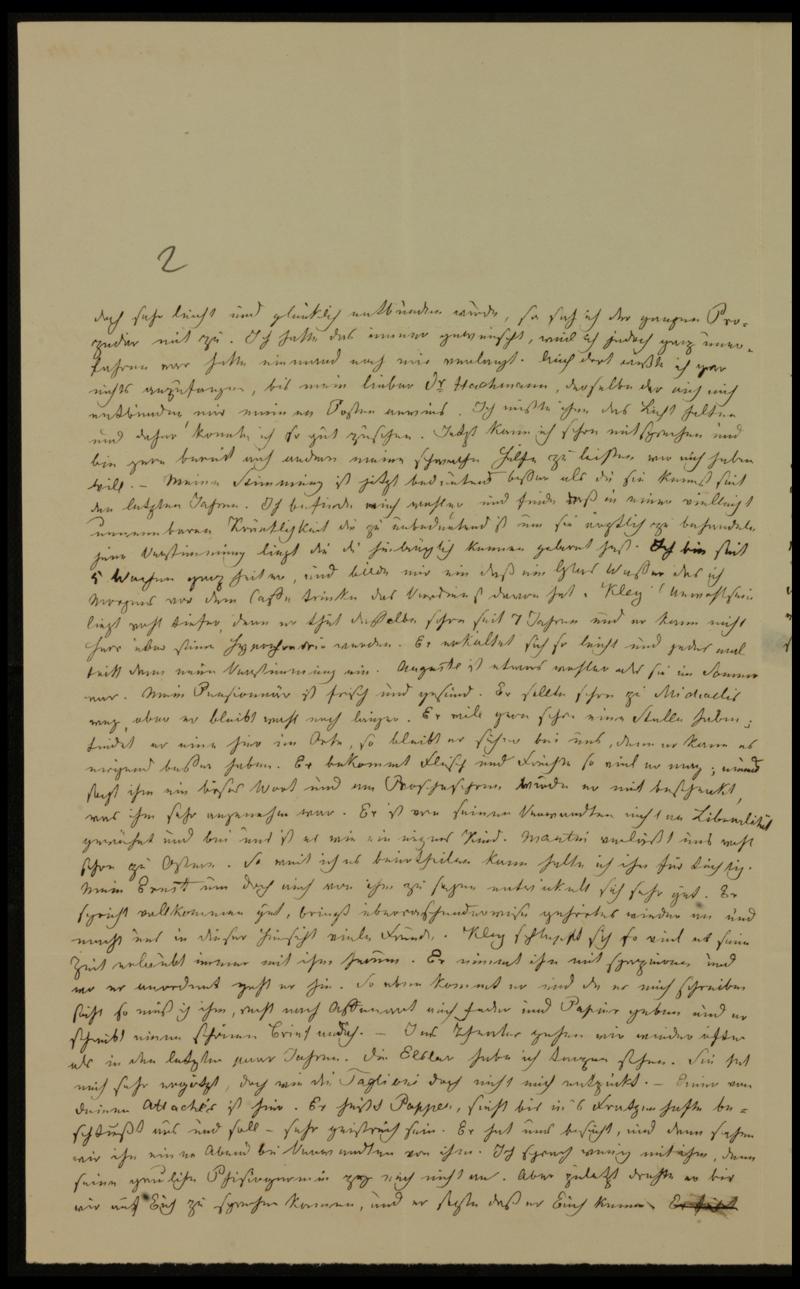 2
doch sehr leicht und glücklich entbunden wurde, so sah ich der ganzen Pro-
zedur mit zu. Ich hatte das immer gewünscht, weil ich jedoch ganz uner-
fahren war hatte niemand nach mir verlangt. Auch dort wußte ich gar
nichts anzufangen, bis mein lieber Dr. Hachmann, derselbe der auch mich
entbunden mir meinen Posten anwies. Ich mußte ihm das Licht halten
und daher konnte ich so gut zusehen. Jetzt kann ich schon mitsprechen und
bin gern bereit auch andern meine schwache Hilfe zu leisten wer mich haben
will. – Meine Stimmung ist jetzt bedeutend besser als du sie kennst seit
den letzten Jahren. Ich befinde mich wohler und finde daß in einer vielleicht
unnennbaren Kränklichkeit die zu unbedeutend ist um sie ärztlich zu behandeln
jene Verstimmung liegt die du hinlänglich kennen gelernt hast. Ich bin seit
5 Wochen ganz heiter, und bilde mir ein daß ein Glas Wasser das ich
Morgens vor dem Caffe trinke das Verdienst davon hat. Kley's Unwohlsein
liegt wohl tiefer, denn er thut dasselbe schon seit 7 Jahren und er kann nicht
Herr über seine Hypochondrie werden. Er erkältet sich so leicht und jedes mal
tritt dann neue Verstimmung ein. Auguste ist etwas wohler als sie im Sommer
war. Mein Pensionär ist frisch und gesund. Er sollte schon zu Michaelis
weg, aber er bleibt wohl noch länger. Er will gern schon eine Stelle haben;
findet er eine hier im Orte, so bleibt er sicher bei uns, denn er kann es
nirgend besser haben. Er bekommt Fleisch und Früchte so viel er mag; niemand
sagt ihm ein böses Wort und am Roschaschone wurde er mit beschenkt,
was ihm sehr angenehm war. Er ist von seinen Verwandten nicht an Liberalität
gewöhnt und bei uns ist er wie ein eignes Kind. Martin verläßt uns wohl
schon zu Ostern. So weit ich es beurtheilen kann halte ich ihn für tüchtig.
Mein Ernst um doch auch von ihm zu sagen entwickelt sich sehr gut. Er
spricht vollkommen gut, bringt überraschenderweise gehörtes wieder an und
macht uns in dieser Hinsicht viele Freude. Kley schleppt sich so viel es seine
Zeit erlaubt immer mit ihm herum. Er nimmt ihn mit spazieren und
wo er anordnet geht er hin. So eben kommt er und da er mich schreiben
sieht so muß ich ihm, recht nach Affenart auch Feder und Papier geben und er
schreibt einen schönen Brief an dich. – Ins Theater gehen wir wieder öfter
als in den letzten paar Jahren. Die Elsler habe ich tanzen sehen. Sie hat
mich sehr ergötzt, doch wie die Taglioni doch nicht mich entzückt. – Einer von
deinen Attachés ist hier. Er heißt Popper, sieht bis ins Fratzenhafte be-
schlußt aus und soll – sehr geistreich sein. Er hat uns besucht, und dann sahen
wir ihn einen Abend bei Verwandten von ihm. Ich sprach wenig mit ihm, denn
seine gräuliche Phisiognomie zog mich nicht an. Aber zuletzt drehte er bis
wir auf Euch zu sprechen kamen, und er sagte daß er Euch kenne.